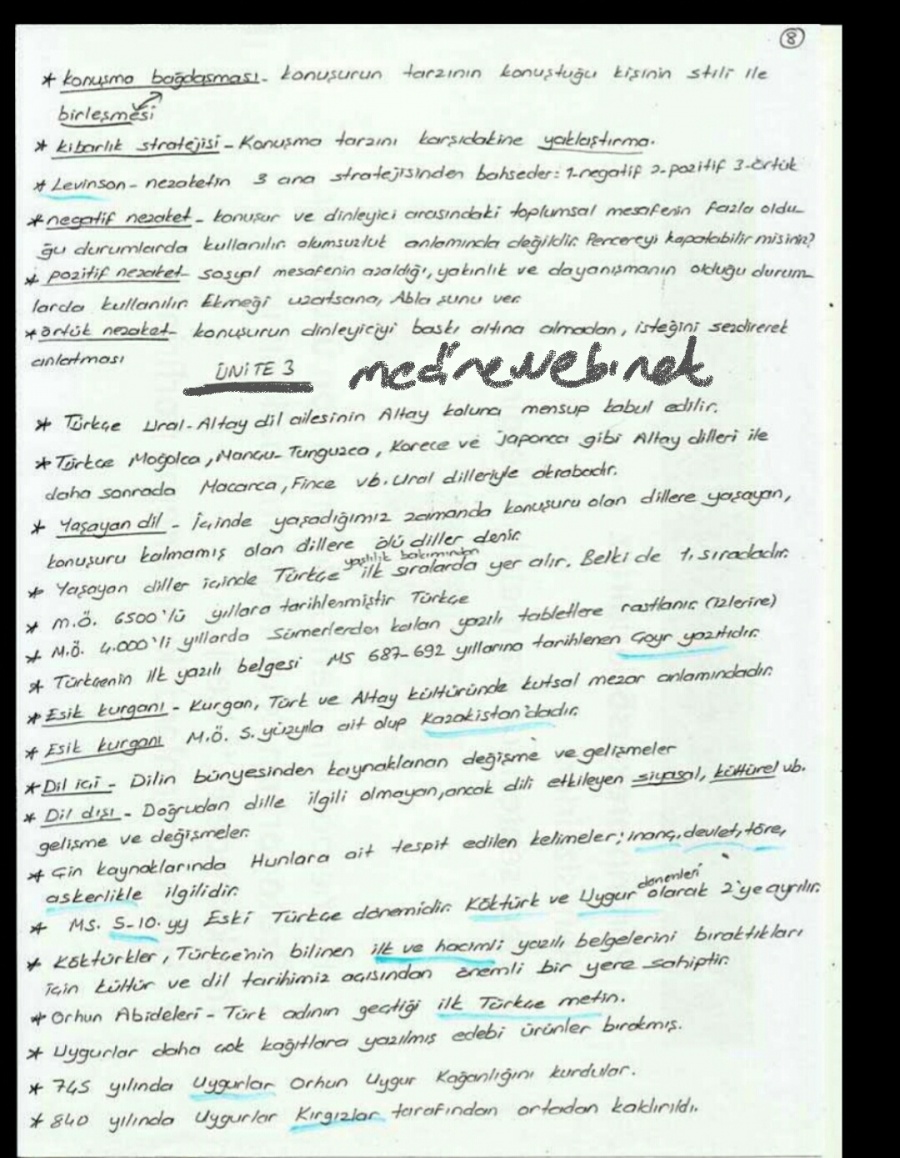 8
* konuşma bağdaşması - konuşurun tarzının konuştuğu kişinin stili ile
birleşmesi
* kibarlık stratejisi - Konuşma tarzını karşıdakine yaklaştırma.
* Levinson - nezaketin 3 ana stratejisinden bahseder: 1-negatif 2-pozitif 3-örtük
* negatif nezaket - konuşur ve dinleyici arasındaki toplumsal mesafenin fazla oldu-
ğu durumlarda kullanılır. olumsuzluk anlamında değildir. Pencereyi kapatabilir misiniz?
* pozitif nezaket - sosyal mesafenin azaldığı, yakınlık ve dayanışmanın olduğu durum-
larda kullanılır. Ekmeği uzatsana, Abla şunu ver.
* örtük nezaket - konuşurun dinleyiciyi baskı altına almadan, isteğini sezdirerek
anlatması
ÜNİTE 3 medinewebinek
* Türkçe Ural-Altay dil ailesinin Altay koluna mensup kabul edilir.
* Türkçe Moğolca, Mançu-Tunguzca, Korece ve Japonca gibi Altay dilleri ile
daha sonrada Macarca, Fince vb. Ural dilleriyle akrabadır.
* Yaşayan dil - İçinde yaşadığımız zamanda konuşuru olan dillere yaşayan,
konuşuru kalmamış olan dillere ölü diller denir.
* Yaşayan diller içinde Türkçe yaşlılık bakımından ilk sıralarda yer alır. Belki de 1. sıradadır.
* m.Ö. 6500'lü yıllara tarihlenmiştir Türkçe
* M.Ö. 4.000'li yıllarda Sümerlerden kalan yazılı tabletlere rastlanır (izlerine)
* Türkçenin ilk yazılı belgesi MS 687-692 yıllarına tarihlenen Çoyr yazıtıdır.
* Esik kurganı - Kurgan, Türk ve Altay kültüründe kutsal mezar anlamındadır.
* Esik kurganı M.Ö. 5. yüzyıla ait olup Kazakistan'dadır.
* Dil içi - Dilin bünyesinden kaynaklanan değişme ve gelişmeler
* Dil dışı - Doğrudan dille ilgili olmayan, ancak dili etkileyen siyasal, kültürel vb.
gelişme ve değişmeler.
* Çin kaynaklarında Hunlara ait tespit edilen kelimeler; inanç, devlet, töre,
askerlikle ilgilidir.
* MS. 5-10. yy Eski Türkçe dönemidir. Köktürk ve Uygur dönemleri olarak 2'ye ayrılır.
* Köktürkler, Türkçe'nin bilinen ilk ve hacimli yazılı belgelerini bıraktıkları
için kültür ve dil tarihimiz açısından önemli bir yere sahiptir.
* Orhun Abideleri - Türk adının geçtiği ilk Türkçe metin.
* Uygurlar daha çok kağıtlara yazılmış edebi ürünler bırakmış.
* 745 yılında Uygurlar Orhun Uygur Kağanlığını kurdular.
* 840 yılında Uygurlar Kırgızlar tarafından ortadan kaldırıldı.